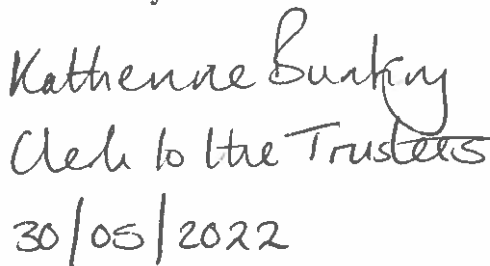 Katherine Bunting
Clerk to the Trustees
30/05/2022